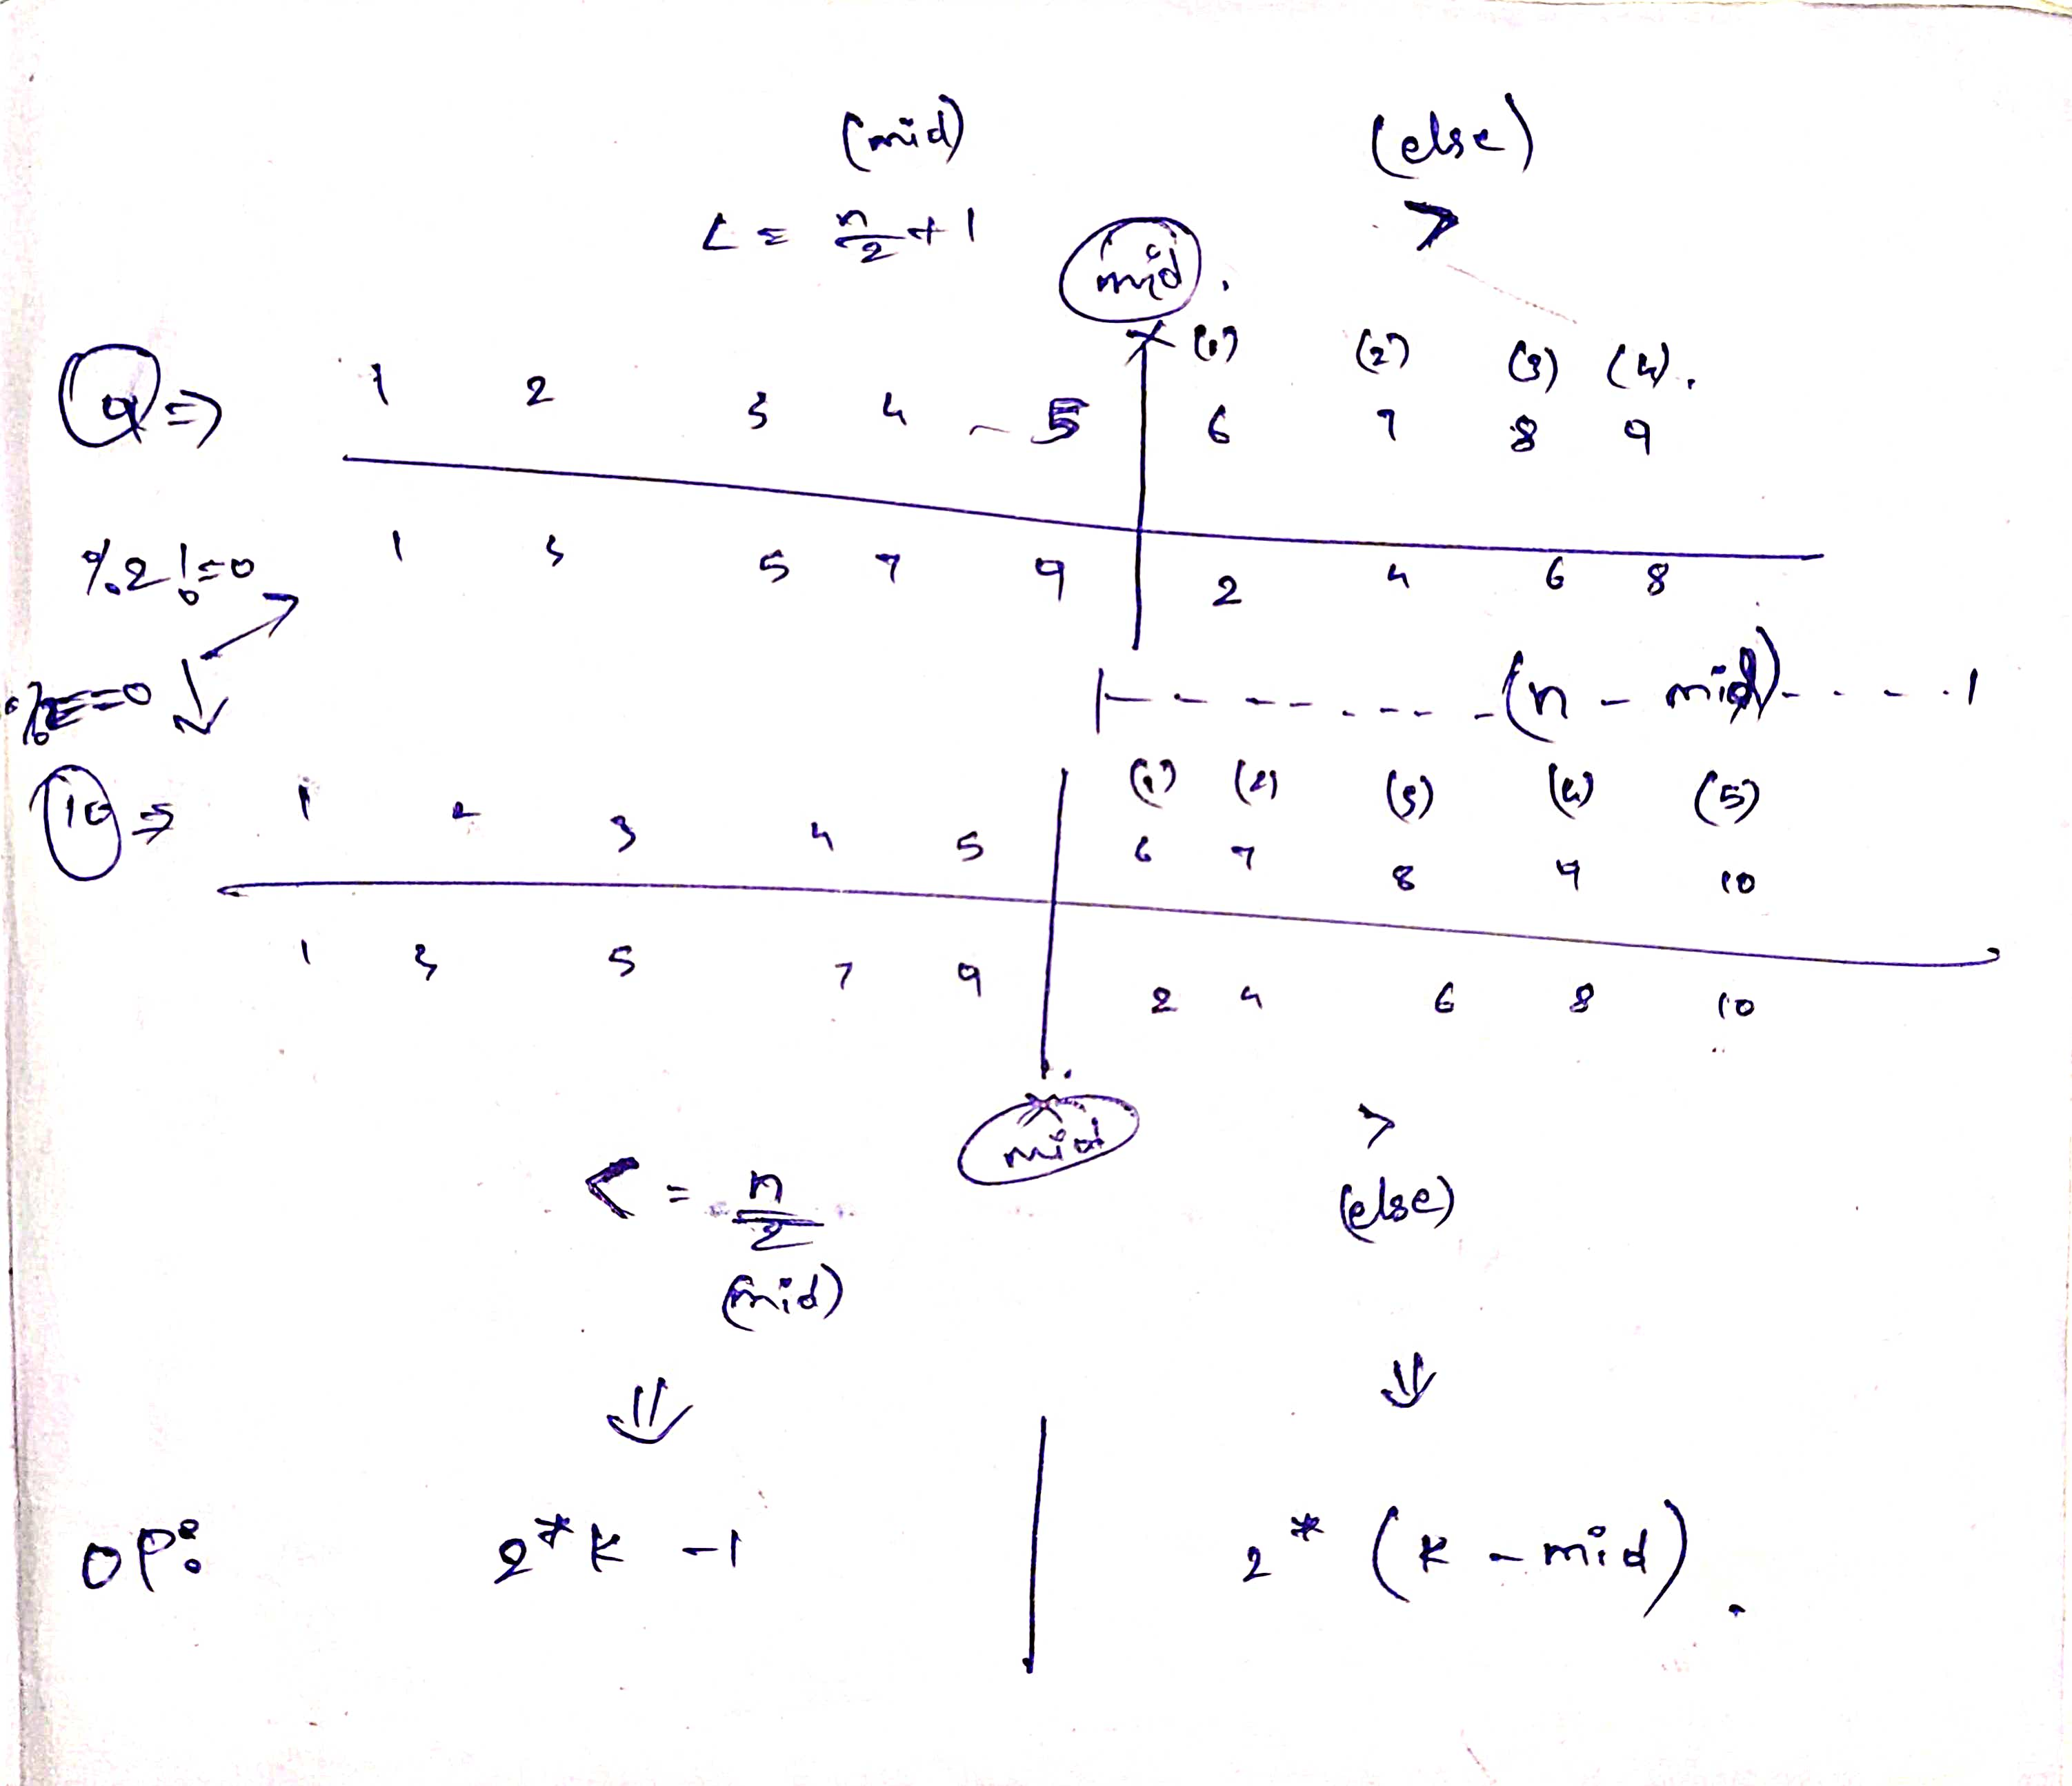 (mid) (else)
<= n/2 + 1 >
mid.
(1) (2) (3) (4).
9 => 1 2 3 4 - 5 6 7 8 9
%2!=0 1 3 5 7 9 2 4 6 8
%2==0 (n - mid)
(1) (2) (3) (4) (5)
10 => 1 2 3 4 5 6 7 8 9 10
1 3 5 7 9 2 4 6 8 10
mid
<= n/2 >
(mid) (else)
OP: 2*k -1 | 2* (k - mid).